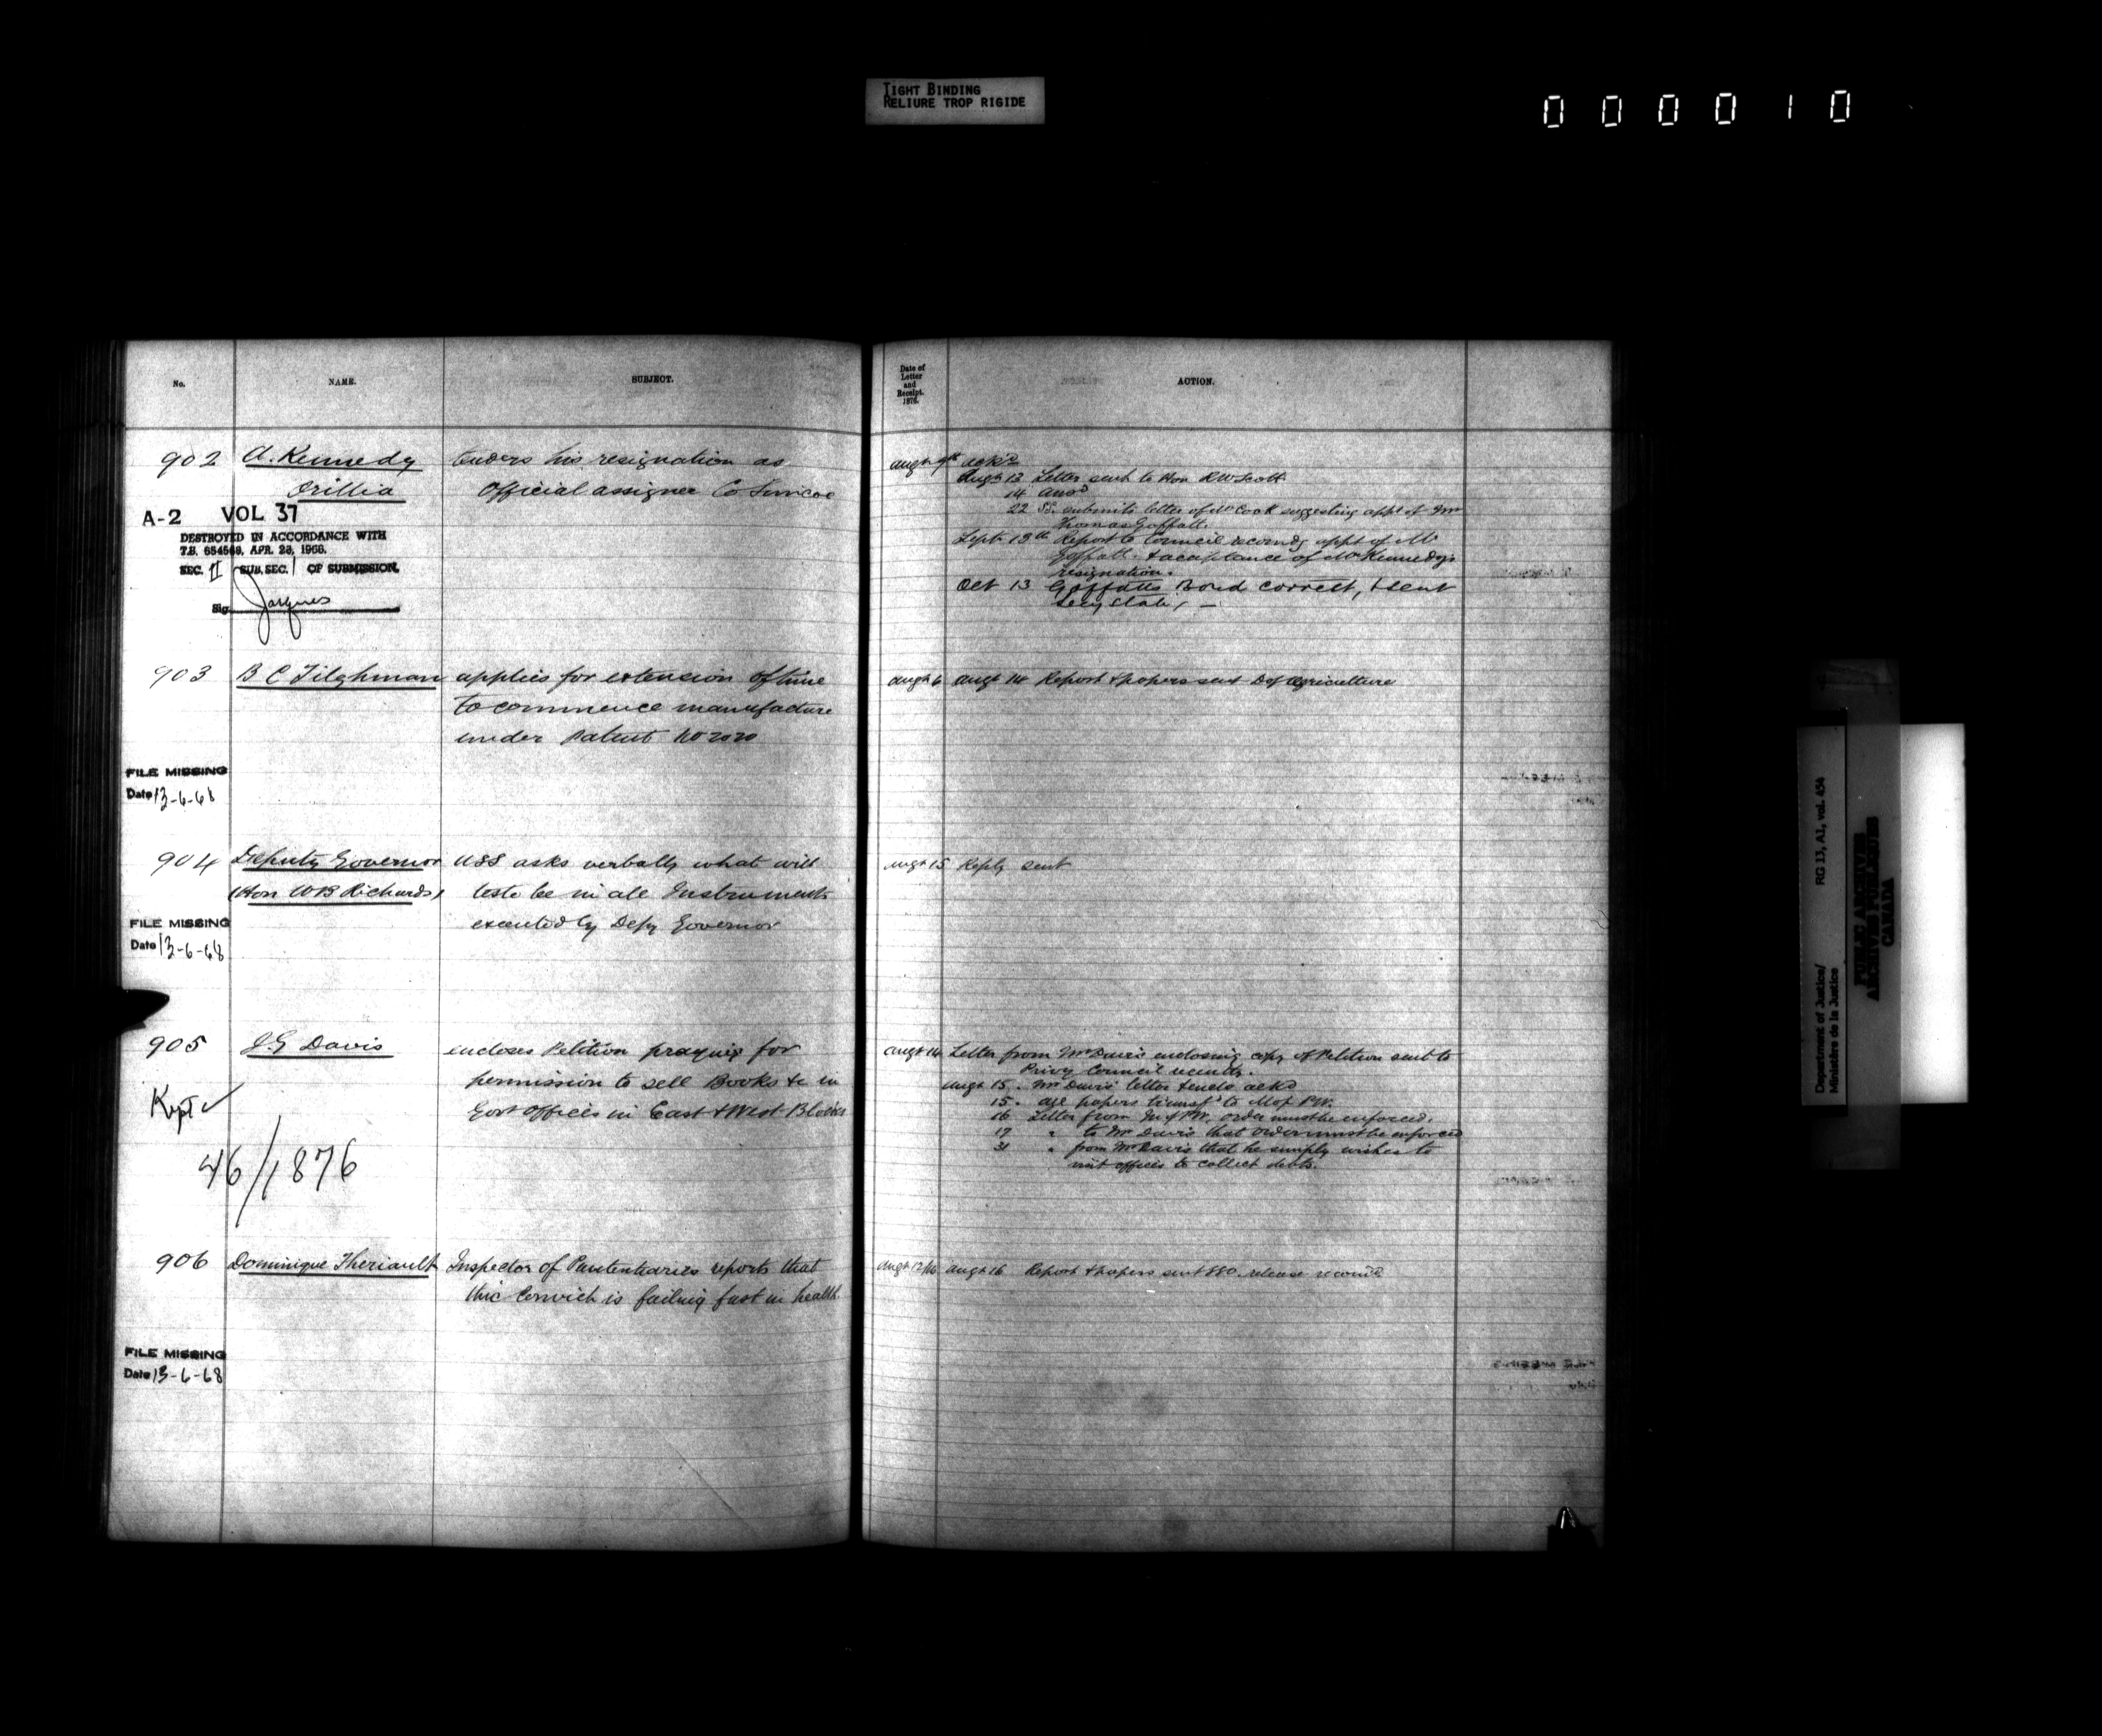 TIGHT BINDING
RELIURE TROP RIGIDE
000010
No. NAME. SUBJECT.
902 A. Kennedy tenders his resignation as
Orillia Official assignee Co Simcoe
A-2 VOL 37
DESTROYED IN ACCORDANCE WITH
T.B. 654568, APR. 28, 1966.
SEC. II SUB. SEC. 1 OF SUBMISSION.
Sig. Jacques
903 B C Tilghman applies for extension of time
to commence manufacture
under patent No 2020
FILE MISSING
Date 13-6-68
904 Deputy Governor USS asks verbally what will
(Hon WB Richards) teste be in all Instruments
executed by Depy Governor
FILE MISSING
Date 13-6-68
905 J.G Davis encloses Petition praying for
permission to sell Books &c in
Kept ✓ Govt offices in East & West Blocks
46/1876
906 Dominique Theriault Inspector of Penitentiaries reports that
this Convict is failing fast in health.
FILE MISSING
Date 13-6-68
Date of
Letter
and
Receipt.
1876.
ACTION.
Augt 9th ackd
Augt 12 Letter sent to Hon RW Scott
14 Ansd
22 SS. submits letter of Mr Cook suggesting appt of Mr
Thomas Goffatt.
Sept 13th Report to Council recomdg appt of Mr
Goffatt & acceptance of Mr Kennedy's
resignation.
Oct 13 Goffatts Bond correct, & sent
Secy State, —
Augt 6 Augt 14 Report & papers sent D of Agriculture
Augt 15 Reply sent
Augt 14 Letter from Mr Davis enclosing copy of Petition sent to
Privy Council
Augt 15. Mr Davis' letter & encls ackd
15. all papers transfd to M of P.W.
16 Letter from M of P.W. order must be enforced.
17 " to Mr Davis that order must be enforced
31 " from Mr Davis that he simply wishes to
visit offices to collect debts.
Augt 12/16 Augt 16 Report & papers sent release recomd
Department of Justice/
Ministère de la Justice
RG 13, A1, vol. 454
PUBLIC ARCHIVES
ARCHIVES PUBLIQUES
CANADA